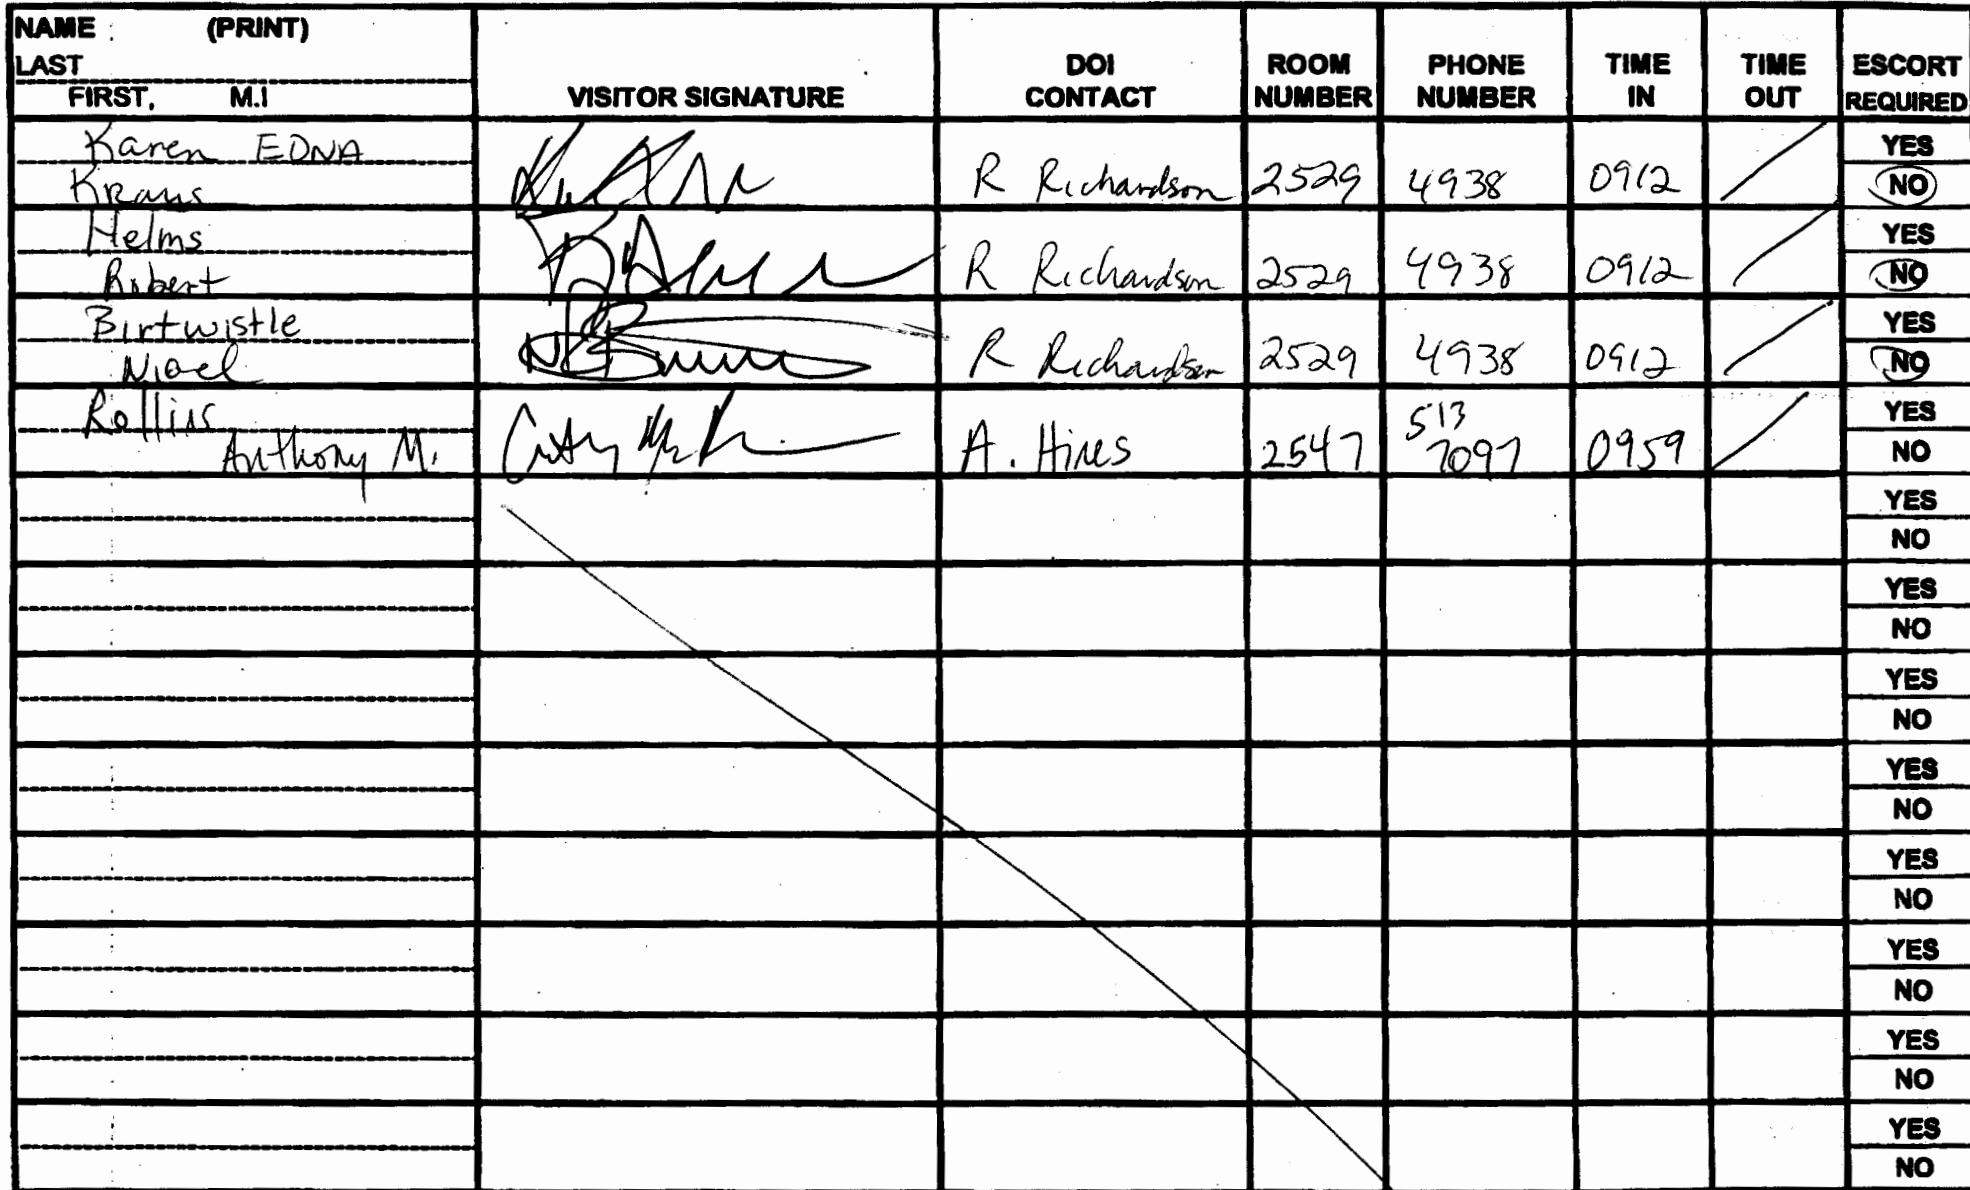 NAME (PRINT)
LAST
FIRST, M.I
VISITOR SIGNATURE
DOI CONTACT
ROOM NUMBER
PHONE NUMBER
TIME IN
TIME OUT
ESCORT REQUIRED
Karen EDNA
Kraus
R Richardson 2529 4938 0912
YES
NO
Helms
Robert
R Richardson 2529 4938 0912
YES
NO
Birtwistle
Nigel
R Richardson 2529 4938 0912
YES
NO
Rollins
Anthony M.
A. Hines 2547 513 7097 0959
YES
NO
YES
NO
YES
NO
YES
NO
YES
NO
YES
NO
YES
NO
YES
NO
YES
NO